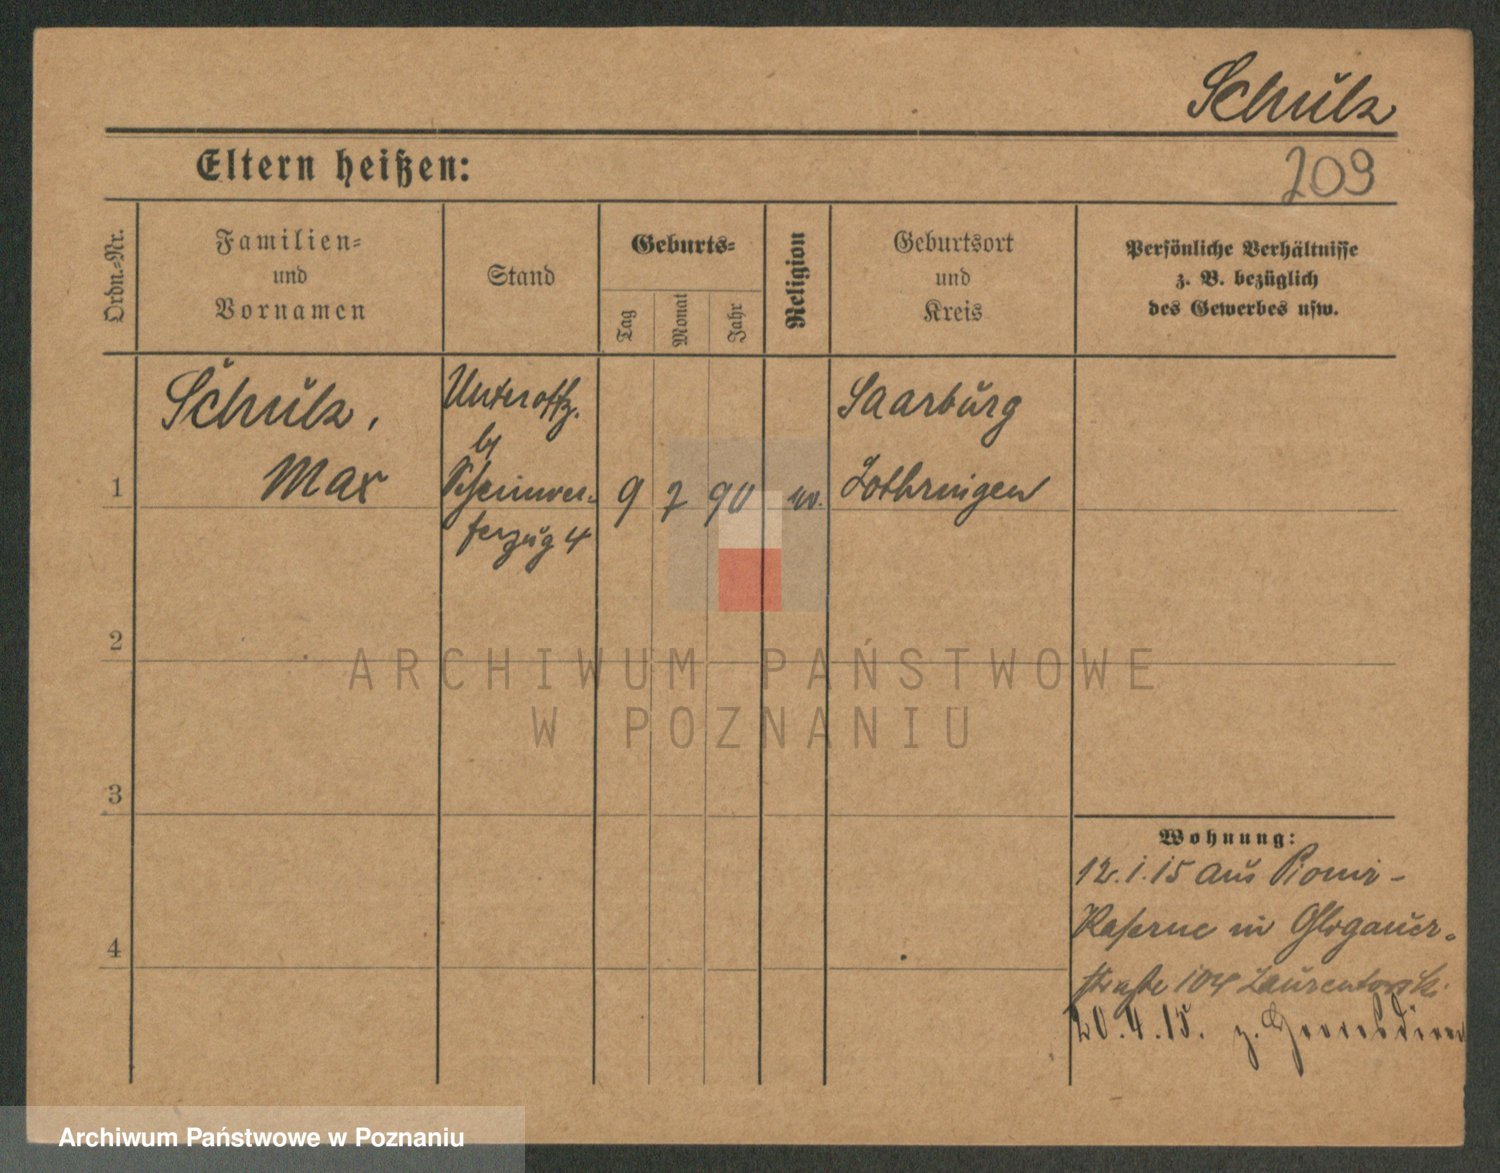 Schulz
209
Eltern heißen:
Ordn.-Nr.
Familien-
und
Vornamen
Stand
Geburts-
Tag
Monat
Jahr
Religion
Geburtsort
und
Kreis
Persönliche Verhältnisse
z. B. bezüglich
des Gewerbes usw.
Schulz,
Max
Unteroffz.
b/
Scheinwer-
ferzug 4
1
9 7 90
Saarburg
Lothringen
2
3
4
Wohnung:
12.1.15 aus Pionir-
Kaserne in Glogauer-
straße 104 Laurentowski
20.4.15. z. Heeresdien
ARCHIWUM PAŃSTWOWE
W POZNANIU
Archiwum Państwowe w Poznaniu